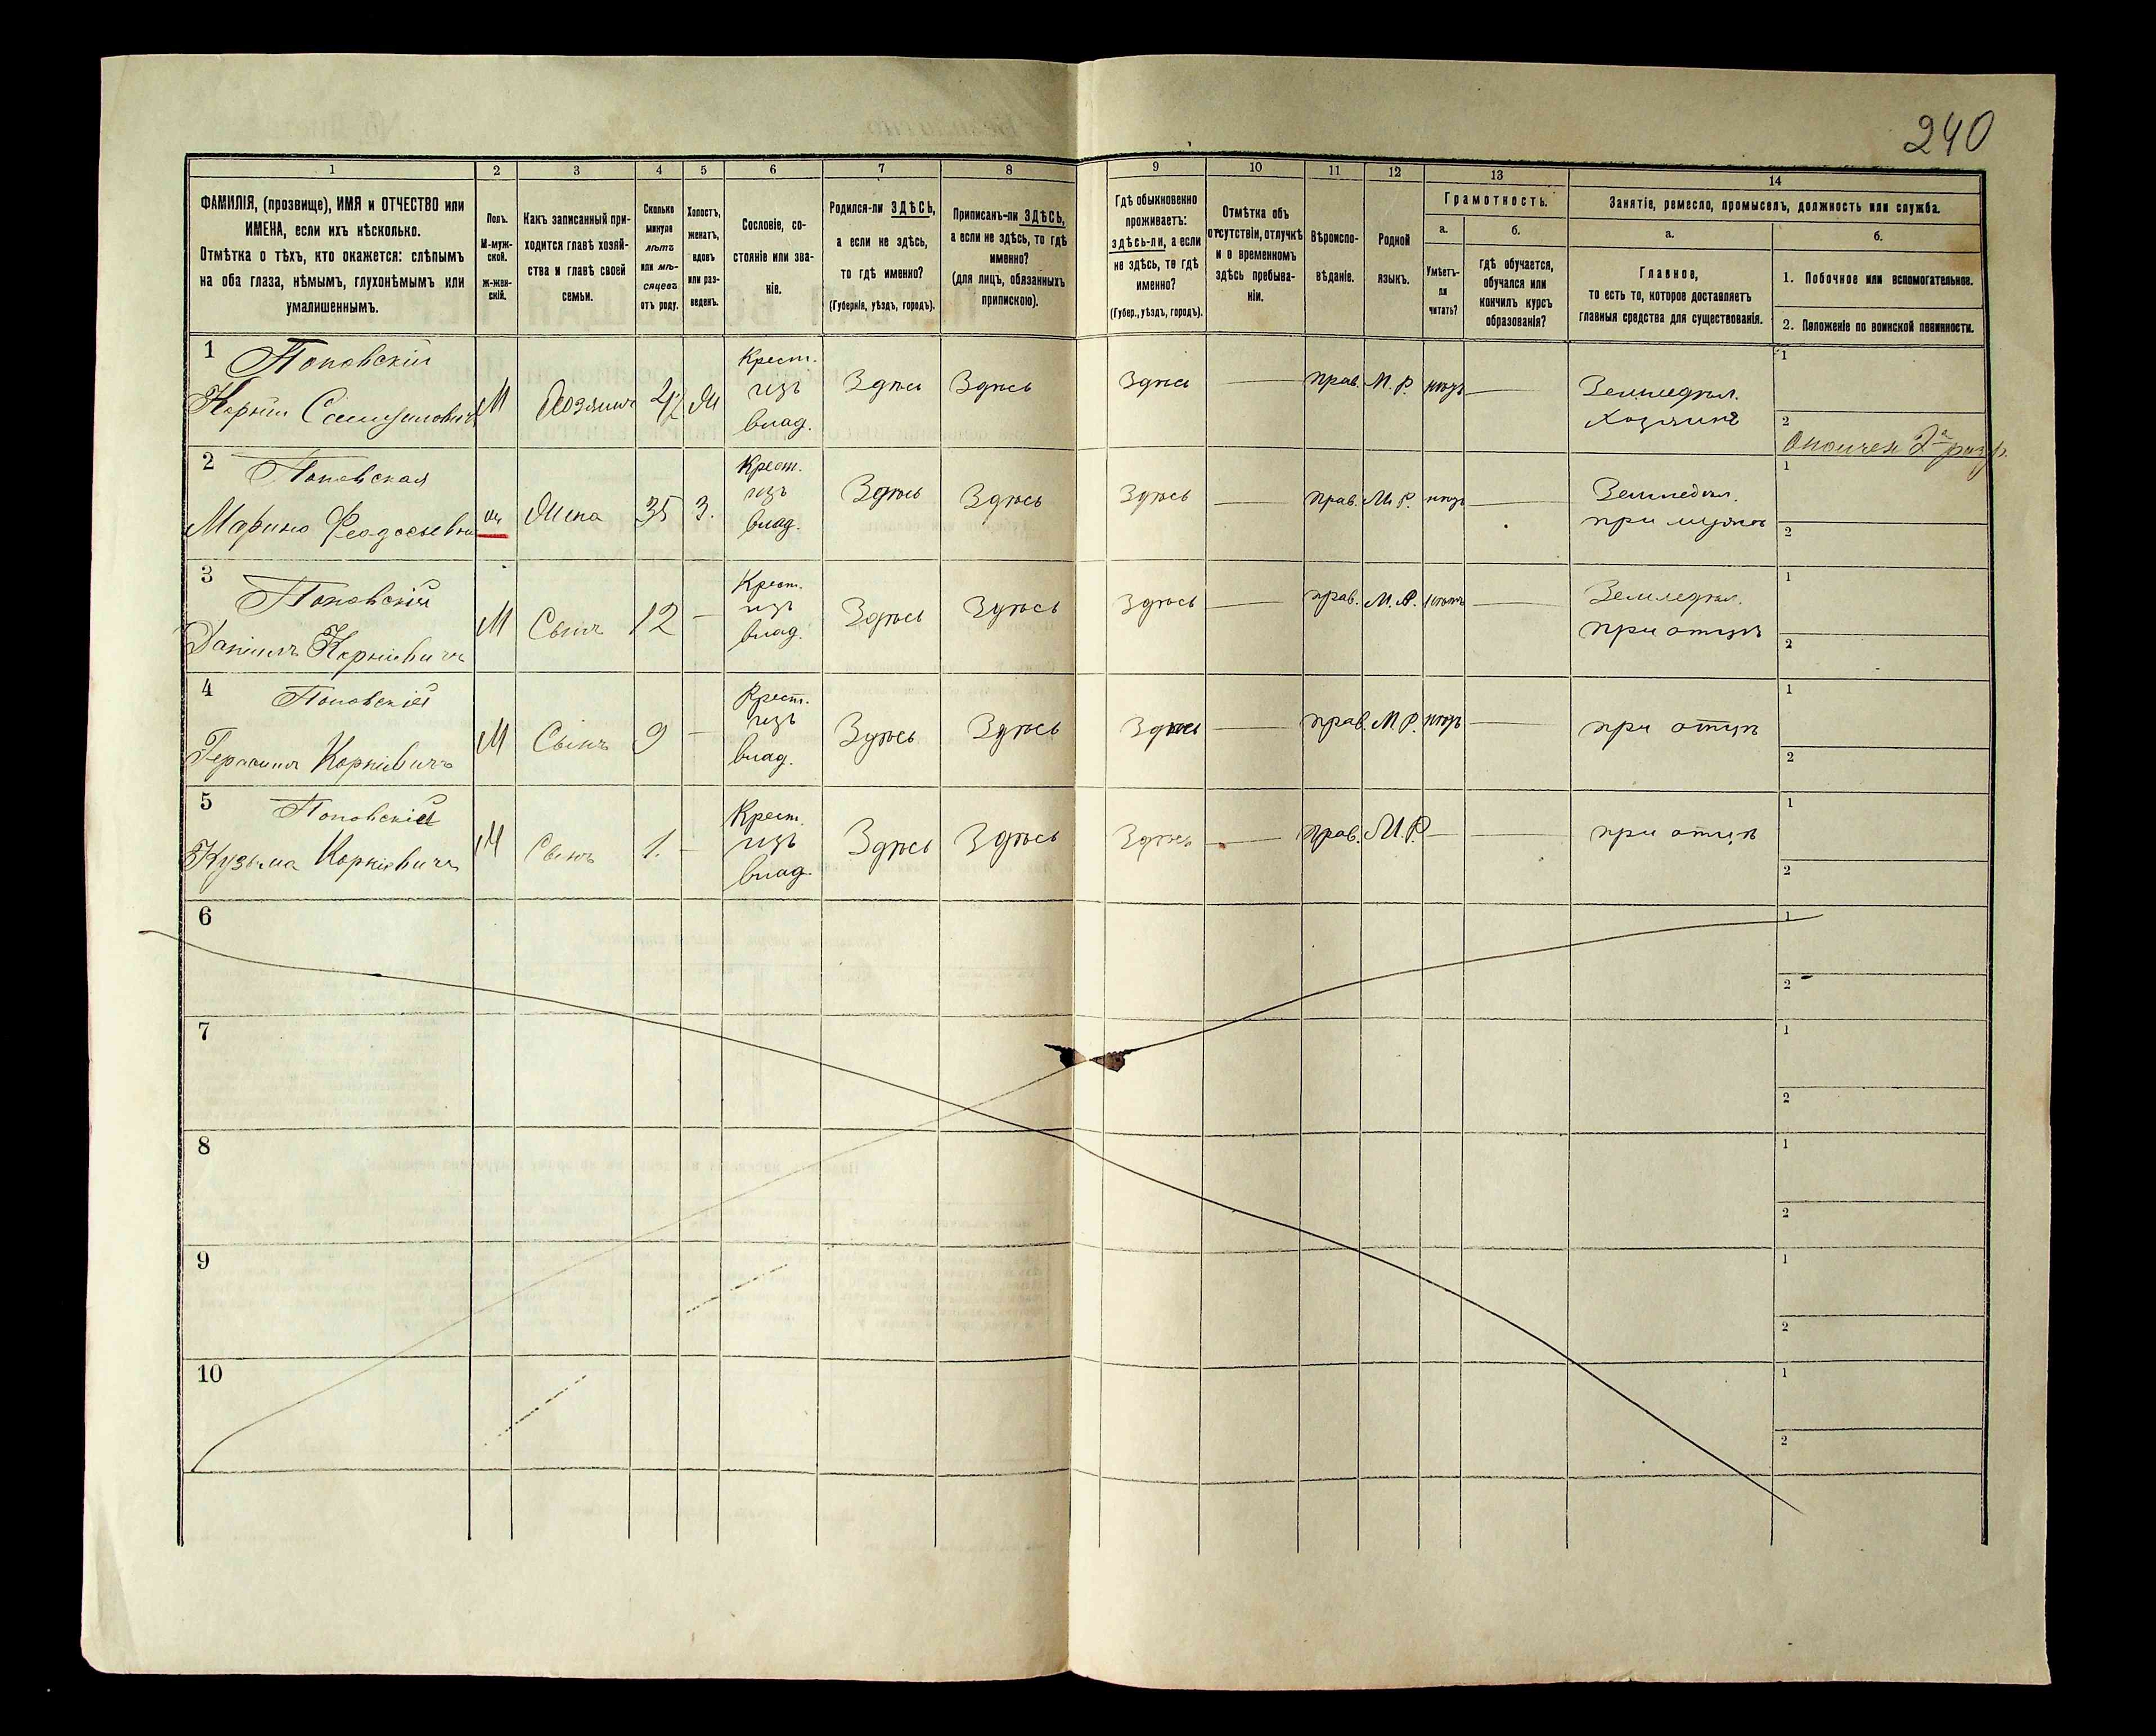 240
1 2 3 4 5 6 7 8 9 10 11 12 13 14
ФАМИЛІЯ, (прозвище), ИМЯ и ОТЧЕСТВО или
ИМЕНА, если ихъ нѣсколько.
Отмѣтка о тѣхъ, кто окажется: слѣпымъ
на оба глаза, нѣмымъ, глухонѣмымъ или
умалишеннымъ.
Полъ.
М-муж-
ской.
ж-жен-
скій.
Какъ записанный при-
ходится главѣ хозяй-
ства и главѣ своей
семьи.
Сколько
минуло
лѣтъ
или мѣ-
сяцевъ
отъ роду.
Холостъ,
женатъ,
вдовъ
или раз-
веденъ.
Сословіе, со-
стояніе или зва-
ніе.
Родился-ли ЗДѢСЬ,
а если не здѣсь,
то гдѣ именно?
(Губернія, уѣздъ, городъ).
Приписанъ-ли ЗДѢСЬ,
а если не здѣсь, то гдѣ
именно?
(для лицъ, обязанныхъ
припискою).
Гдѣ обыкновенно
проживаетъ:
здѣсь-ли, а если
не здѣсь, то гдѣ
именно?
(Губер., уѣздъ, городъ).
Отмѣтка объ
отсутствіи, отлучкѣ
и о временномъ
здѣсь пребыва-
ніи.
Вѣроиспо-
вѣданіе.
Родной
языкъ.
Грамотность.
а.
Умѣетъ-
ли
читать?
б.
гдѣ обучается,
обучался или
кончилъ курсъ
образованія?
Занятіе, ремесло, промыселъ, должность или служба.
а.
Главное,
то есть то, которое доставляетъ
главныя средства для существованія.
б.
1. Побочное или вспомогательное.
2. Положеніе по воинской повинности.
1 Поповскій
Корній Самуиловичъ
М
Хозяинъ
42
Ж
Крест.
изъ
влад.
Здѣсь
Здѣсь
Здѣсь
прав.
М. Р.
нѣтъ
Земледѣл.
хозяинъ
1
2
Ополчен. 2а разр.
2 Поповская
Марина Феодосьевна
ж
Жена
35
З.
Крест.
изъ
влад.
Здѣсь
Здѣсь
Здѣсь
прав.
М. Р.
нѣтъ
Земледѣл.
при мужѣ
1
2
3 Поповскій
Даніилъ Корніевичъ
М
Сынъ
12
Крест.
изъ
влад.
Здѣсь
Здѣсь
Здѣсь
прав.
М. Р.
нѣтъ
Земледѣл.
при отцѣ
1
2
4 Поповскій
Корніевичъ
М
Сынъ
9
Крест.
изъ
влад.
Здѣсь
Здѣсь
Здѣсь
прав.
М. Р.
нѣтъ
при отцѣ
1
2
5 Поповскій
Кузьма Корніевичъ
М
Сынъ
1.
Крест.
изъ
влад.
Здѣсь
Здѣсь
Здѣсь
прав.
М. Р.
при отцѣ
1
2
6
1
2
7
1
2
8
1
2
9
1
2
10
1
2